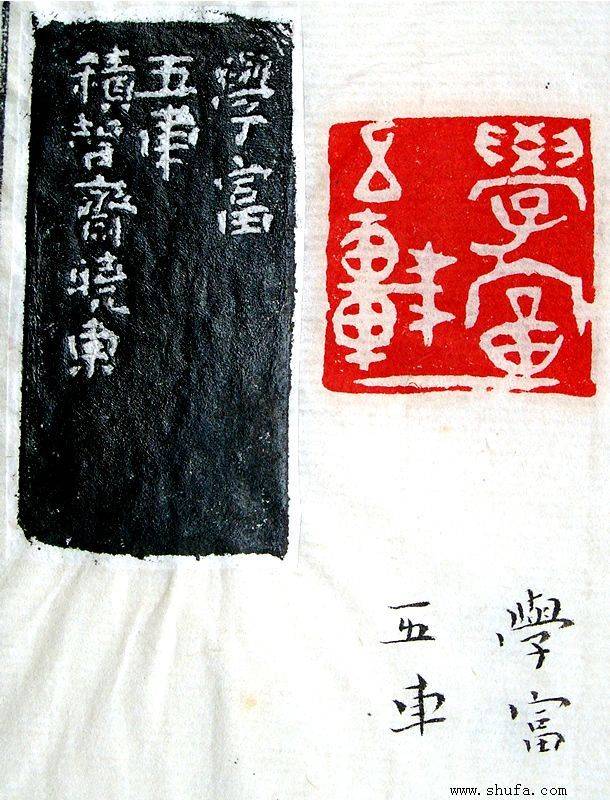 學富
五車
學富
五車
積齋晓東
學富
五車
www.shufa.com